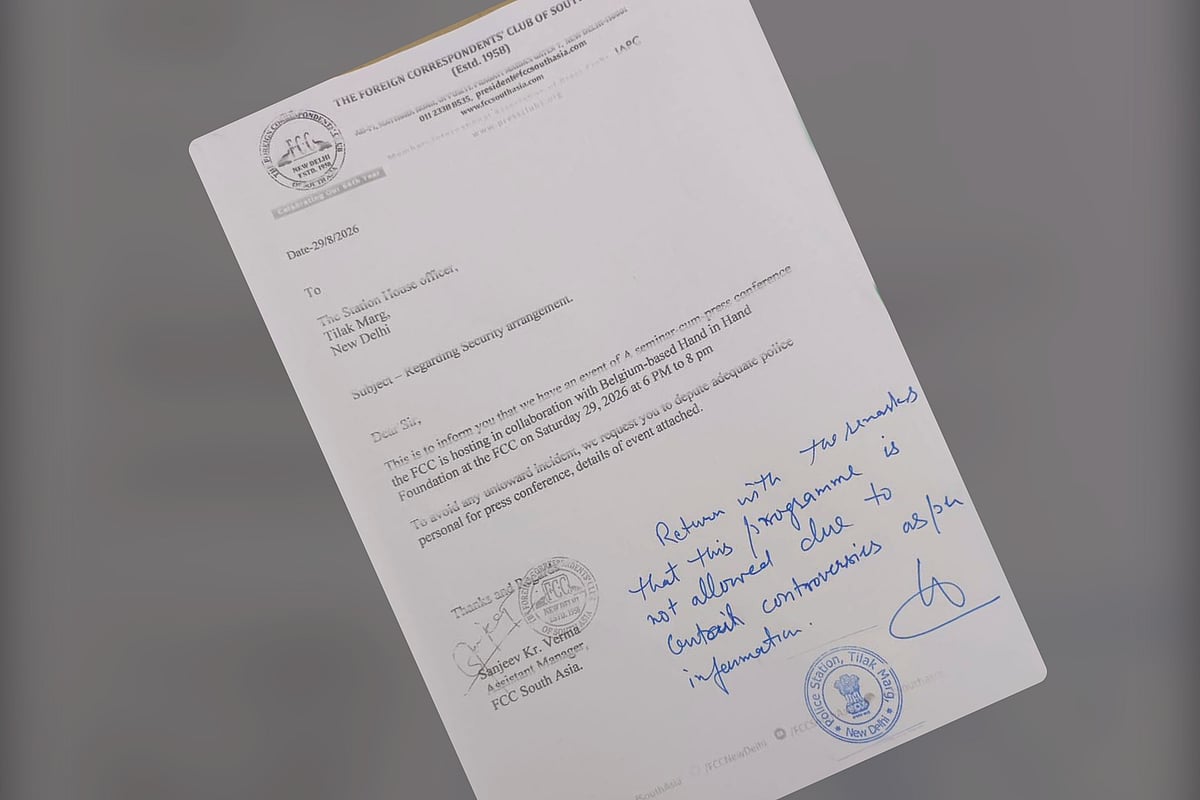 THE FOREIGN CORRESPONDENTS' CLUB OF SOUTH
(Estd. 1958)
NEW DELHI-110001
011 2338 8535, president@fccsouthasia.com
www.fccsouthasia.com
Member: International Association of Press Clubs - IAPC
www.pressclubs.org
THE FOREIGN CORRESPONDENTS' CLUB
FCC
NEW DELHI
ESTD. 1958
OF SOUTH ASIA
Celebrating Our 68th Year
Date-29/8/2026
To
The Station House officer,
Tilak Marg,
New Delhi
Subject – Regarding Security arrangement.
Dear Sir,
This is to inform you that we have an event of A seminar-cum-press conference
the FCC is hosting in collaboration with Belgium-based Hand in Hand
Foundation at the FCC on Saturday 29, 2026 at 6 PM to 8 pm
To avoid any untoward incident, we request you to depute adequate police
personal for press conference, details of event attached.
Return with the remarks
that this programme is
not allowed due to
controversies as per
information.
Thanks and
FCC
NEW DELHI
OF SOUTH ASIA
Sanjeev Kr. Verma
Assistant Manager,
FCC South Asia.
Police Station, Tilak Marg,
New Delhi
/FCCNewDelhi